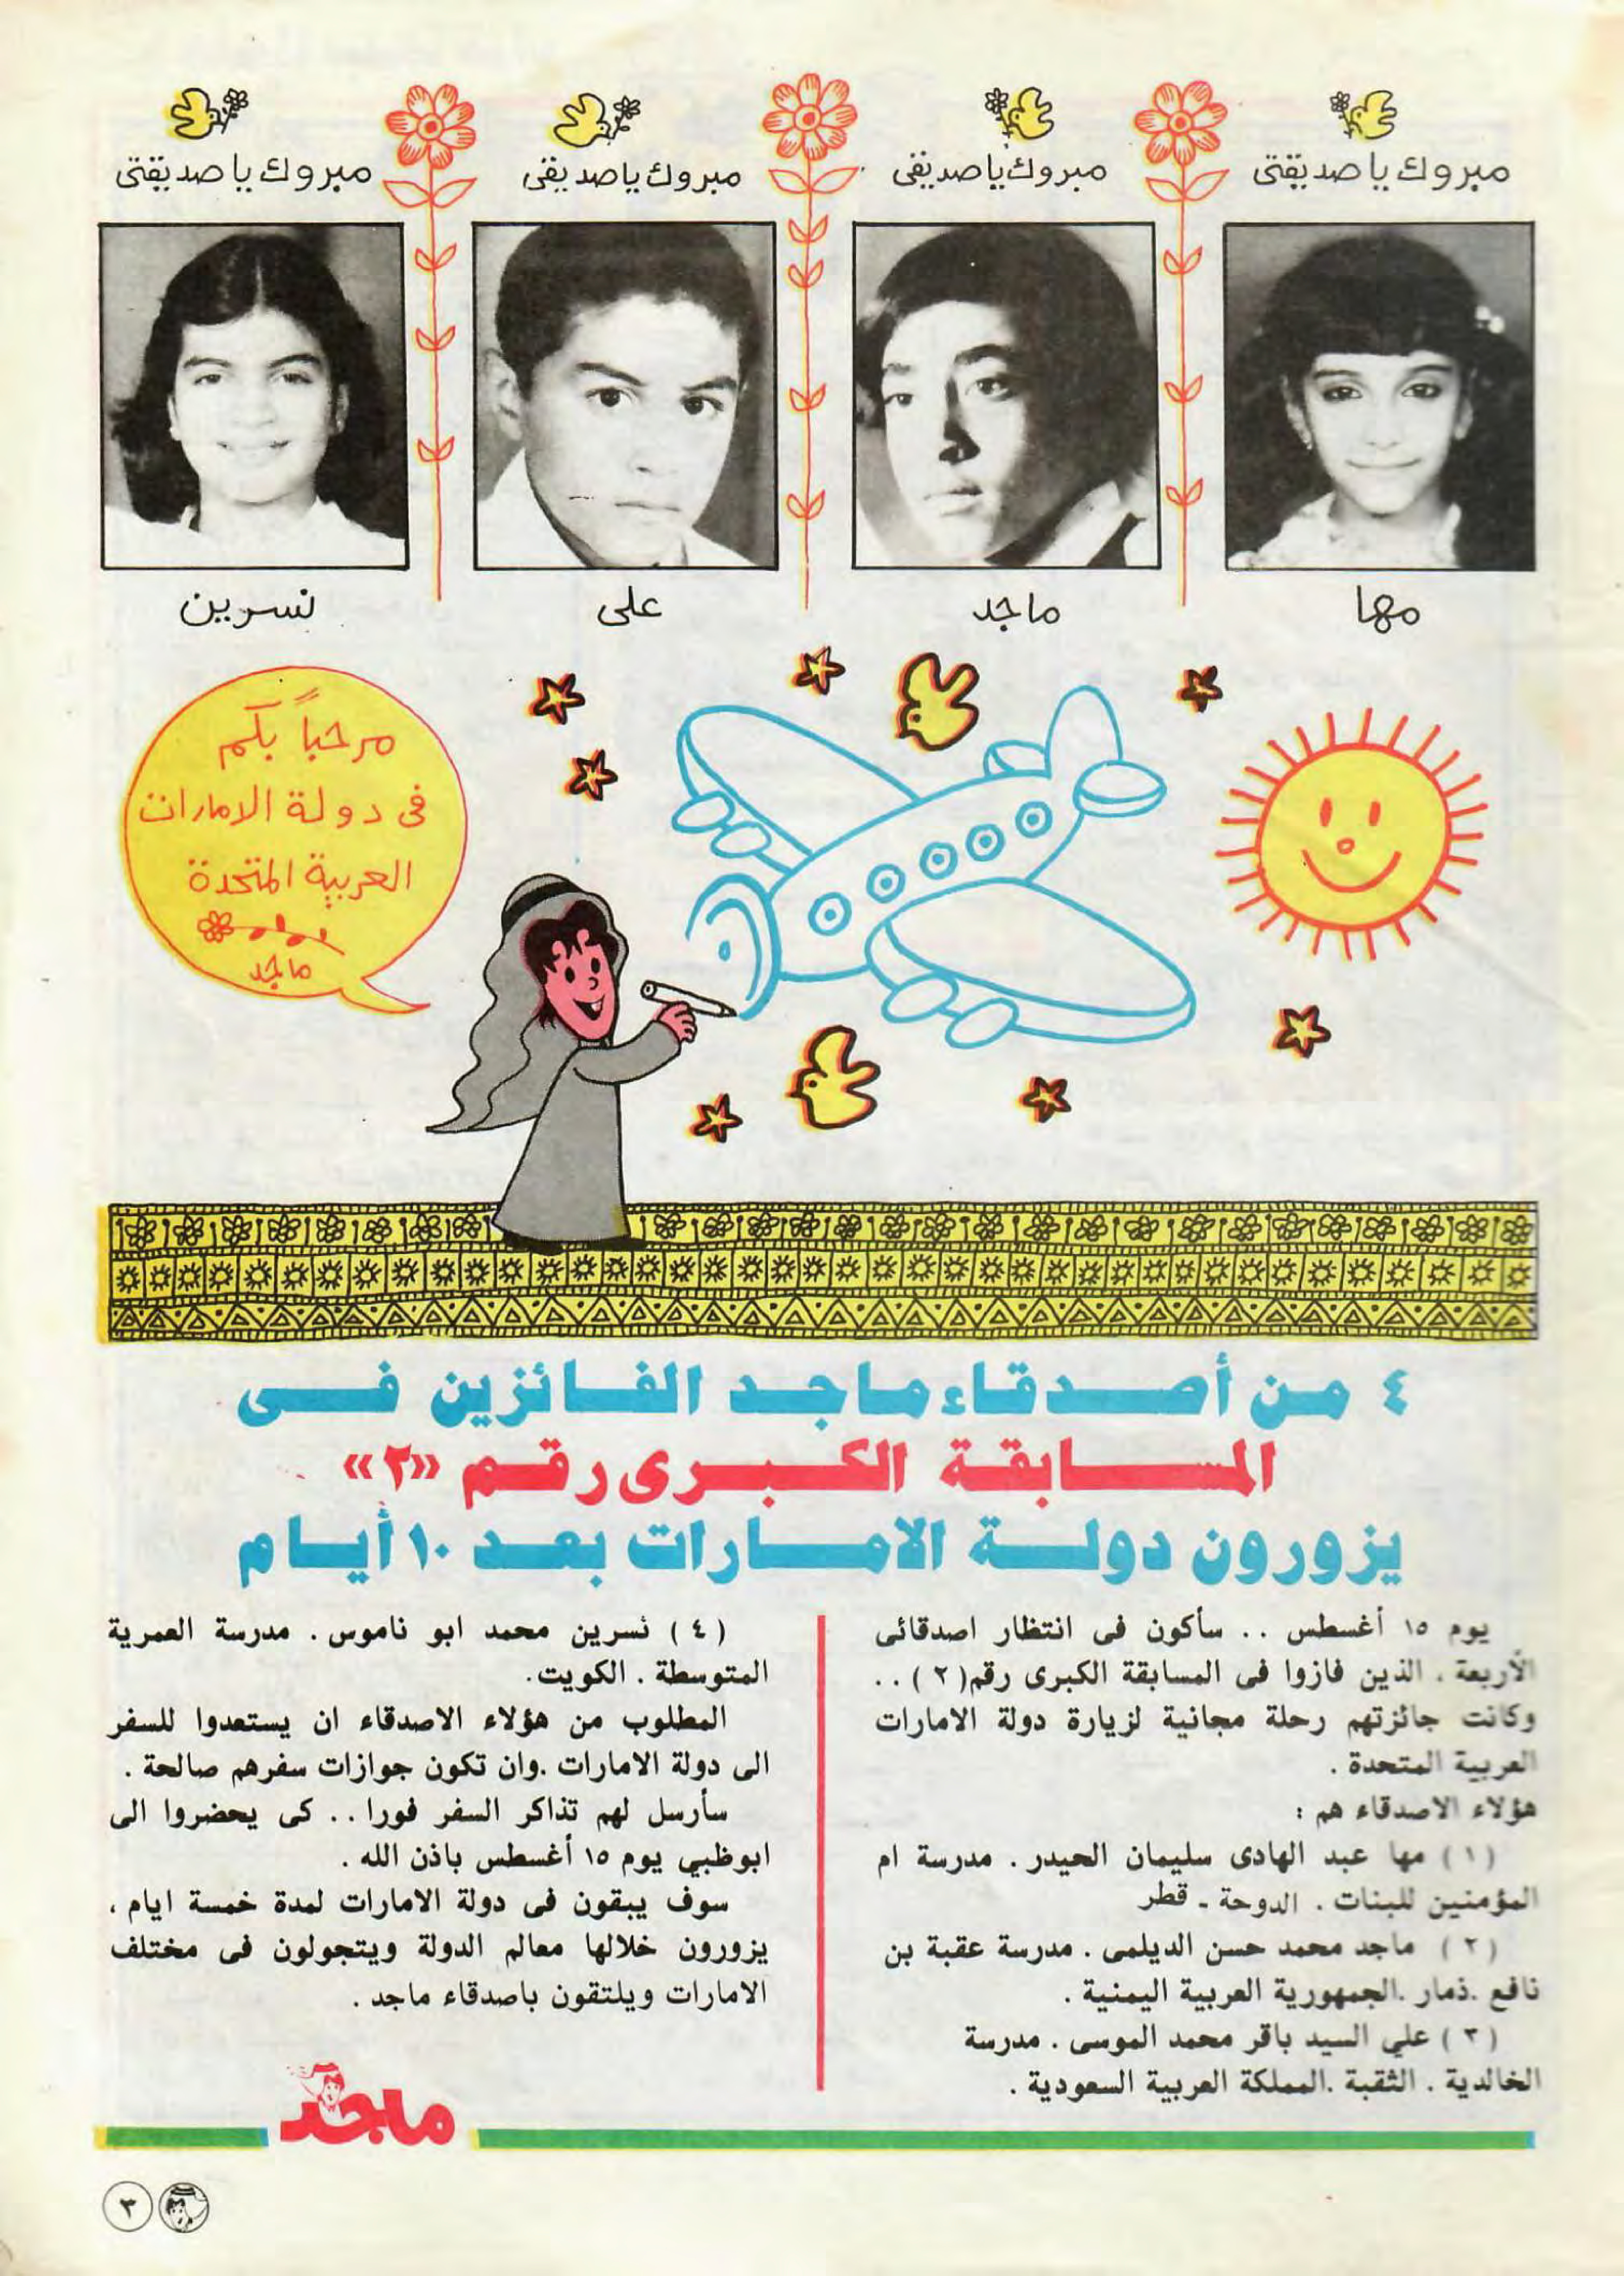 مبروك يا صديقتى
مبروك يا صديقى
مبروك يا صديقى
مبروك يا صديقتى
مها
ماجد
على
نسرين
مرحباً بكم
فى دولة الامارات
العربية المتحدة
ماجد
٤ من أصدقاء ماجد الفائزين فى
المسابقة الكبرى رقم «٢»
يزورون دولة الامارات بعد ١٠ أيام
يوم ١٥ أغسطس .. سأكون فى انتظار اصدقائى
الأربعة . الذين فازوا فى المسابقة الكبرى رقم (٢) ..
وكانت جائزتهم رحلة مجانية لزيارة دولة الامارات
العربية المتحدة .
هؤلاء الاصدقاء هم :
(١) مها عبد الهادى سليمان الحيدر . مدرسة ام
المؤمنين للبنات . الدوحة - قطر
(٢) ماجد محمد حسن الديلمى . مدرسة عقبة بن
نافع .ذمار .الجمهورية العربية اليمنية .
(٣) علي السيد باقر محمد الموسى . مدرسة
الخالدية . الثقبة .المملكة العربية السعودية .
(٤) نسرين محمد ابو ناموس . مدرسة العمرية
المتوسطة . الكويت.
المطلوب من هؤلاء الاصدقاء ان يستعدوا للسفر
الى دولة الامارات .وان تكون جوازات سفرهم صالحة .
سأرسل لهم تذاكر السفر فورا .. كى يحضروا الى
ابوظبي يوم ١٥ أغسطس باذن الله .
سوف يبقون فى دولة الامارات لمدة خمسة ايام ،
يزورون خلالها معالم الدولة ويتجولون فى مختلف
الامارات ويلتقون باصدقاء ماجد .
ماجد
٣